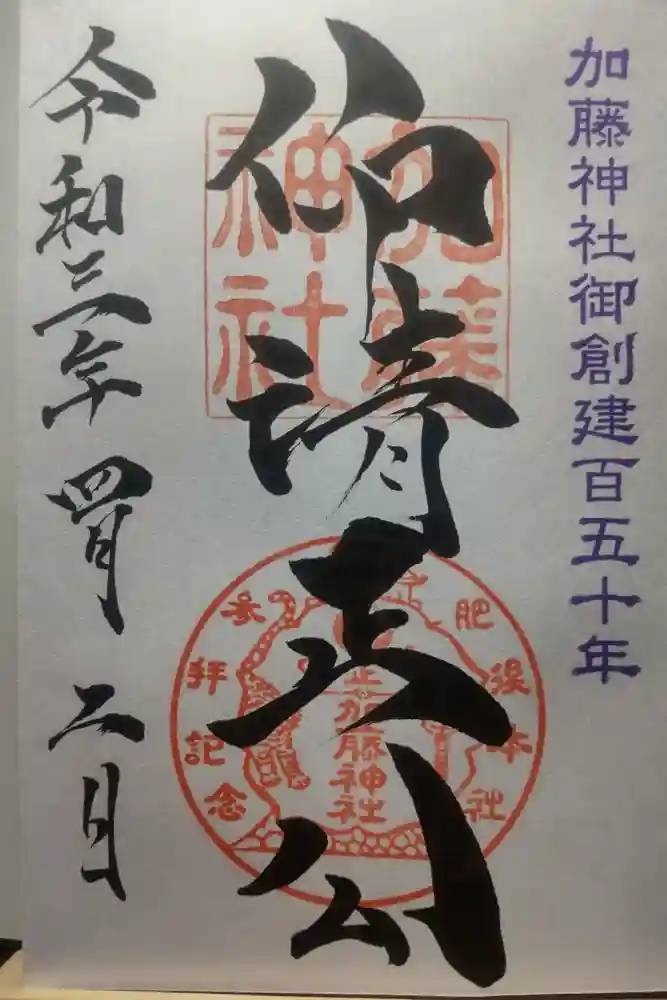 加藤神社御創建百五十年
仰清正公
加藤
神社
肥後本社
参拝記念
加藤神社
令和三年 四月 二日